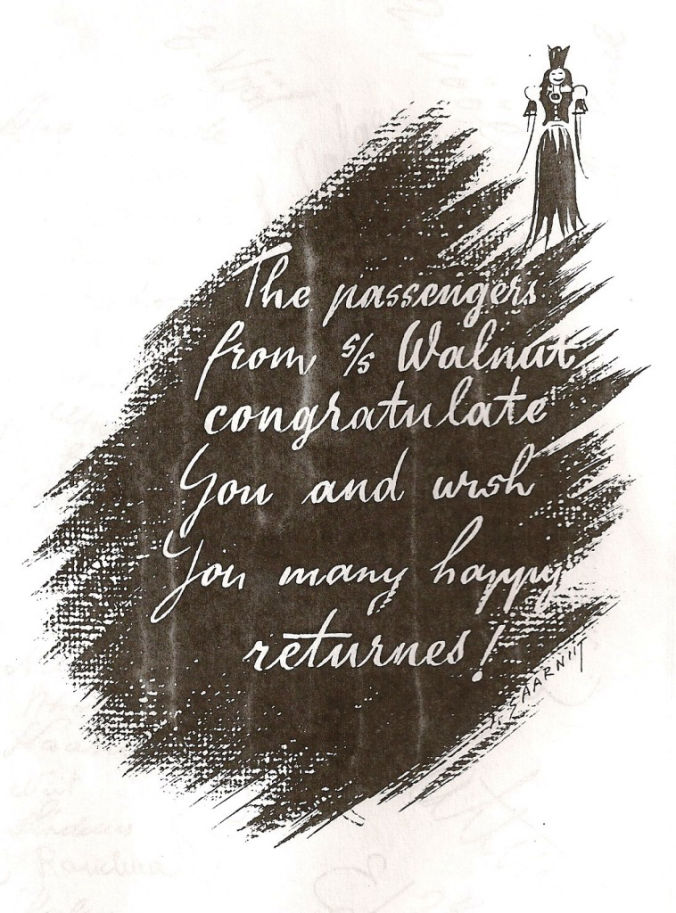 The passengers
from s/s Walnut,
congratulate
You and wish
You many happy
returnes!
SAARNIIT